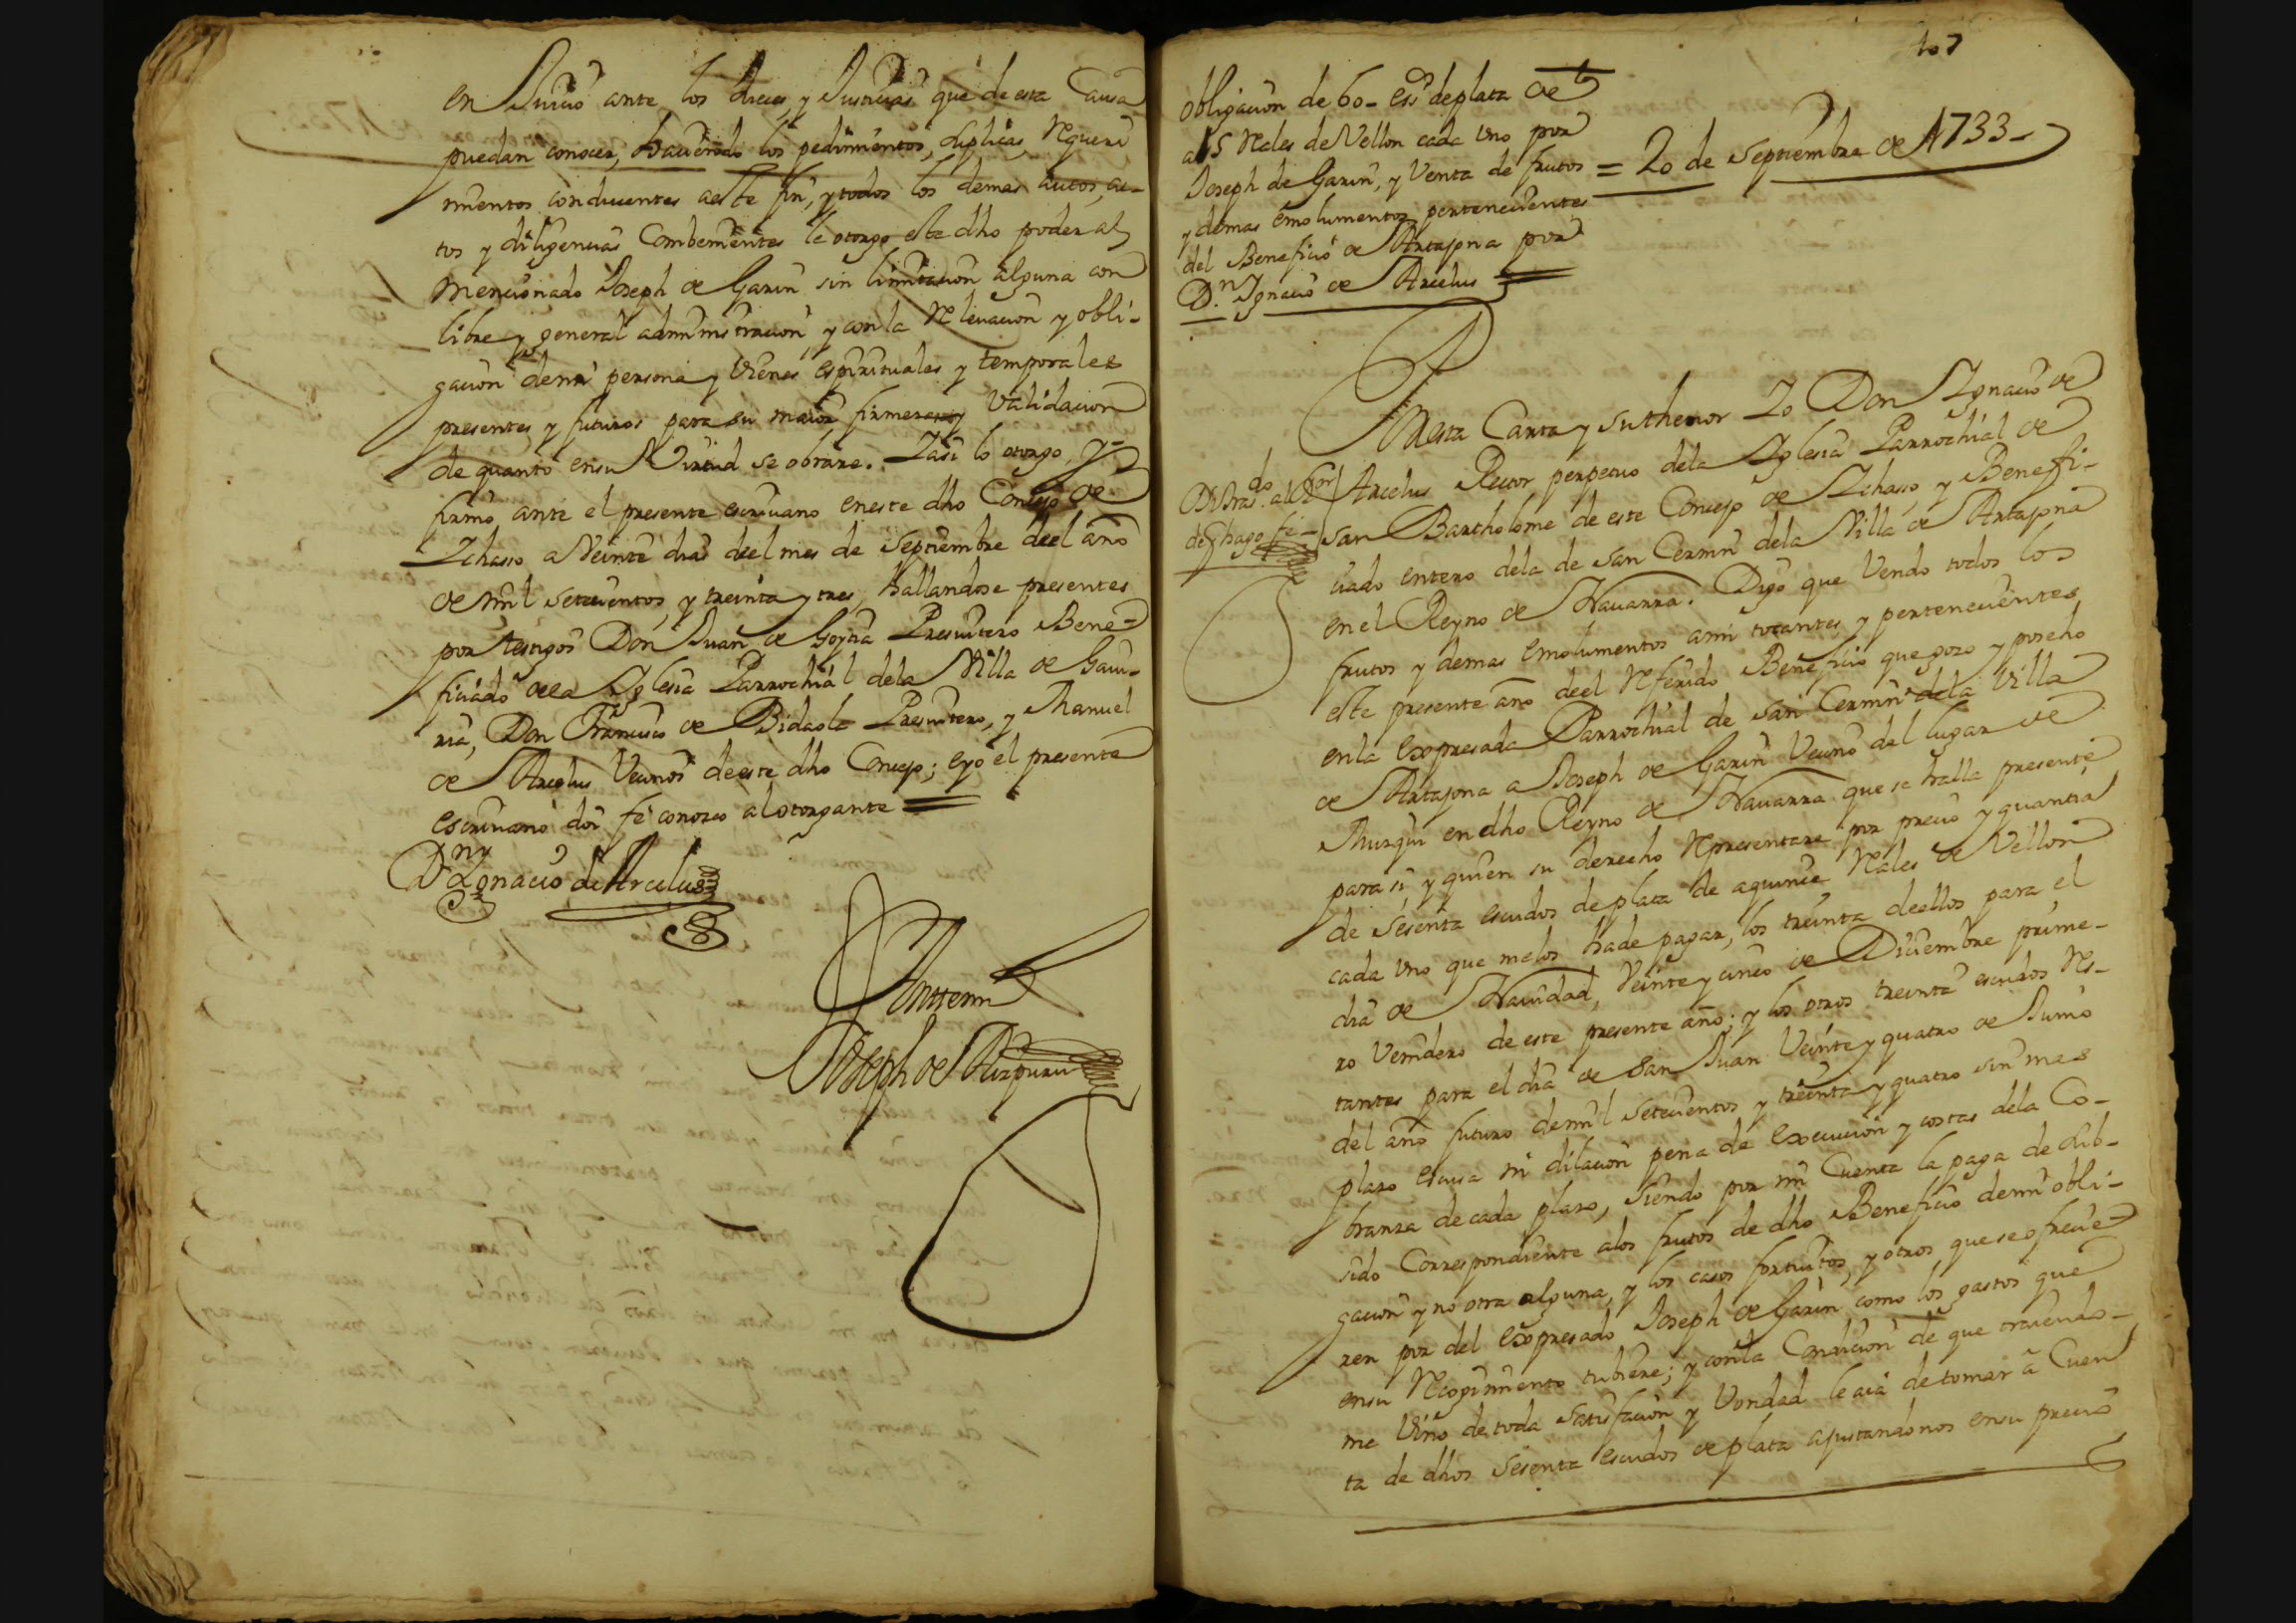 en Juicio ante los Jueces, y Justicias que de esta Causa
puedan conocer, haciendo los pedimientos, suplicas, requeri
mientos conducentes a este fin, y todos los demas autos, ac-
tos y diligencias Combenientes le otorgo este dho poder al
mencionado Joseph de Garin sin limitacion alguna con
libre y general administracion y con la relevacion y obli-
gacion de mi persona y vienes espirituales y temporales
presentes y futuros para su maior firmeza y Validacion
de quanto en su Virtud se obrare. Y asi lo otorgo, y
firmo ante el presente escrivano en este dho Concejo de
Ychasso a Veinte dias del mes de Septiembre deel año
de mil setecientos, y treinta y tres, hallandose presentes
por testigos Don Juan de Goytia Presvitero Bene-
ficiado de la Yglesia Parrochial dela Villa de Gavi-
ria, Don Francisco de Bidaola Presvitero, y Manuel
de Arcelus Vecinos de este dho Concejo; e yo el presente
escrivano doi fe conozco al otorgante
Dn Ygnacio de Arcelus
Antemi
Joseph de Aizpuru
107
Obligacion de 60- esss de plata de
a 15 Rales de Vellon cada Uno por
Joseph de Garin, y Venta de frutos
y demas emolumentos pertenecientes
del Beneficio de Artajona por
D.n Ygnacio de Arcelus
= 20 de Septiembre de 1733-
En esta Carta y su thenor Yo Don Ygnacio de
Arcelus Rector perpetuo dela Yglesia Parrochial de
san Bartholome de este Concejo de Ychasso y Benefi-
ciado entero dela de san Cernin dela Villa de Artajona
en el Reyno de Navarra. Digo que Vendo todos los
frutos y demas emolumentos ami tocantes, y pertenecientes
este presente año deel referido Beneficio que gozo y poseho
enla expresada Parrochial de san Cernin dela Villa
de Artajona a Joseph de Garin Vecino del lugar de
Murgui en dho Reyno de Navarra que se halla presente
para si, y quien su derecho representare por precio y quantia
de sesenta escudos de plata de aquince Rales de Vellon
cada Uno que melos hade pagar, los treinta deellos para el
dia de Navidad, Veinte y cinco de Diciembre prime-
ro Venidero de este presente año; y los otros treinta escudos res-
tantes para el dia de San Juan Veinte y quatro de Junio
del año futuro demil setecientos y treinta y quatro sin mas
plazo escusa ni dilacion pena de execucion y costas dela Co-
branza de cada plazo, siendo por mi Cuenta la paga de sub-
sido Correspondiente alos frutos de dho Beneficio demi obli-
gacion y no otra alguna, y los casos fortuitos, y otros que se ofrecie-
ren por del expresado Joseph de Garin como los gastos que
ensu recogimiento tubiere; y conla Condicion de que traiendo-
me Vino de toda satisfacion y Vondad le aia de tomar à Cuen
ta de dhos sesenta escudos de plata ajustandonos ensu precio